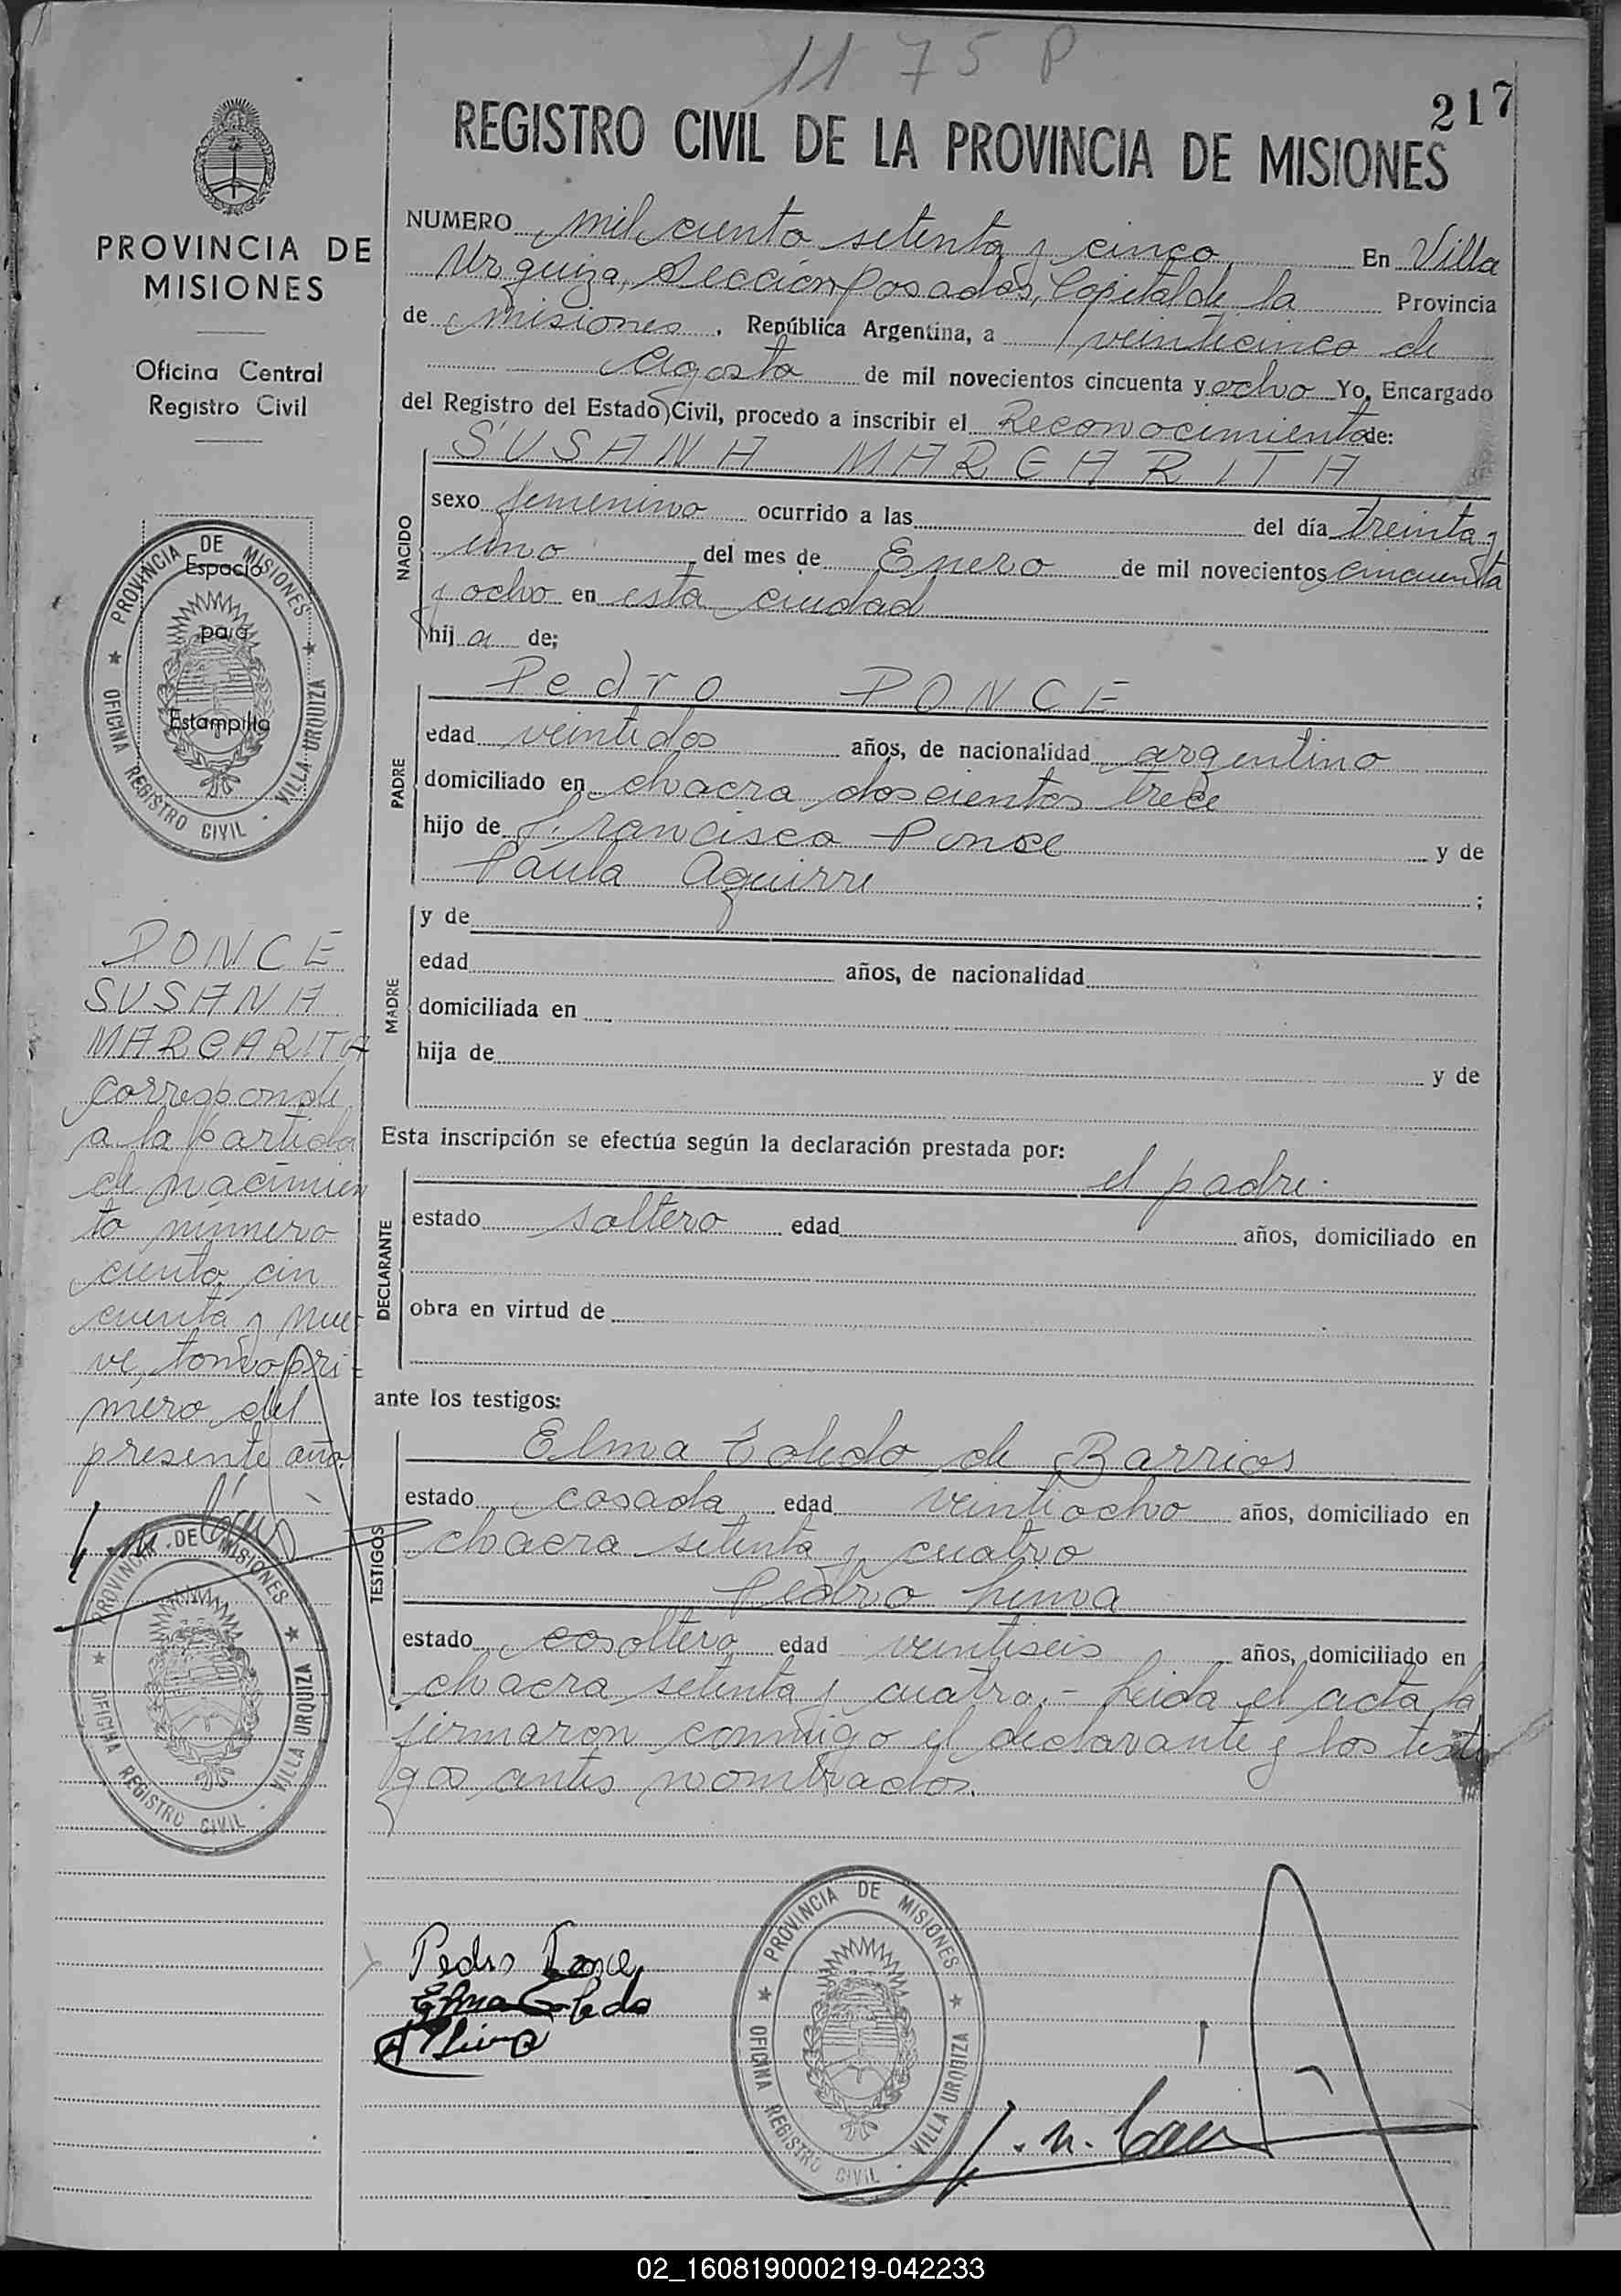 1175 P
217
REGISTRO CIVIL DE LA PROVINCIA DE MISIONES
PROVINCIA DE
MISIONES
Oficina Central
Registro Civil
PROVINCIA DE MISIONES
OFICINA REGISTRO CIVIL - VILLA URQUIZA
Espacio
para
Estampilla
PONCE
SUSANA
MARGARITA
corresponde
a la partida
de nacimien
to número
ciento cin
cuenta y nue-
ve, tomo pri-
mero del
presente año
PROVINCIA DE MISIONES
OFICINA REGISTRO CIVIL - VILLA URQUIZA
NUMERO mil ciento setenta y cinco En Villa
Urquiza, Sección Posadas, Capital de la Provincia
de Misiones, República Argentina, a veinticinco de
Agosto de mil novecientos cincuenta y ocho Yo, Encargado
del Registro del Estado Civil, procedo a inscribir el Reconocimiento de:
SUSANA MARGARITA
NACIDO
sexo femenino ocurrido a las del día treinta y
uno del mes de Enero de mil novecientos cincuenta
y ocho en esta ciudad
hija de;
Pedro PONCE
PADRE
edad veintidos años, de nacionalidad argentino
domiciliado en chacra doscientos trece
hijo de Francisco Ponce y de
Paula Aguirre ;
MADRE
y de
edad años, de nacionalidad
domiciliada en
hija de y de
Esta inscripción se efectúa según la declaración prestada por:
el padre.
DECLARANTE
estado soltero edad años, domiciliado en
obra en virtud de
ante los testigos:
Elma Toledo de Barrios
TESTIGOS
estado casada edad veintiocho años, domiciliado en
chacra setenta y cuatro
Pedro Lima
estado soltero edad veintiseis años, domiciliado en
chacra setenta y cuatro.- Leida el acta la
firmaron conmigo el declarante y los testi
gos antes nombrados.
Pedro Ponce
Elma Toledo
Lima
PROVINCIA DE MISIONES
OFICINA REGISTRO CIVIL - VILLA URQUIZA
02_160819000219-042233